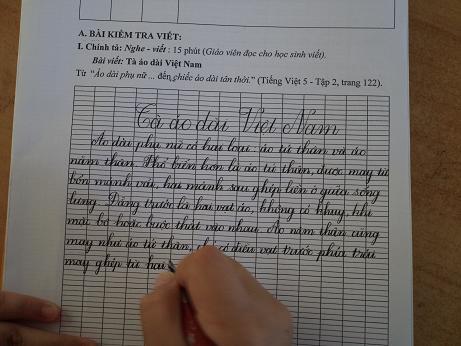 A. BÀI KIỂM TRA VIẾT:
I. Chính tả: Nghe - viết : 15 phút (Giáo viên đọc cho học sinh viết).
Bài viết: Tà áo dài Việt Nam
Từ "Áo dài phụ nữ ... đến chiếc áo dài tân thời." (Tiếng Việt 5 - Tập 2, trang 122).
Tà áo dài Việt Nam
Áo dài phụ nữ có hai loại: áo tứ thân và áo
năm thân. Phổ biến hơn là áo tứ thân, được may từ
bốn mảnh vải, hai mảnh sau ghép liền ở giữa sống
lưng. Đằng trước là hai vạt áo, không có khuy, khi
mặc bỏ hoặc buộc thắt vào nhau. Áo năm thân cũng
may như áo tứ thân, chỉ có điều vạt trước phía trái
may ghép từ hai